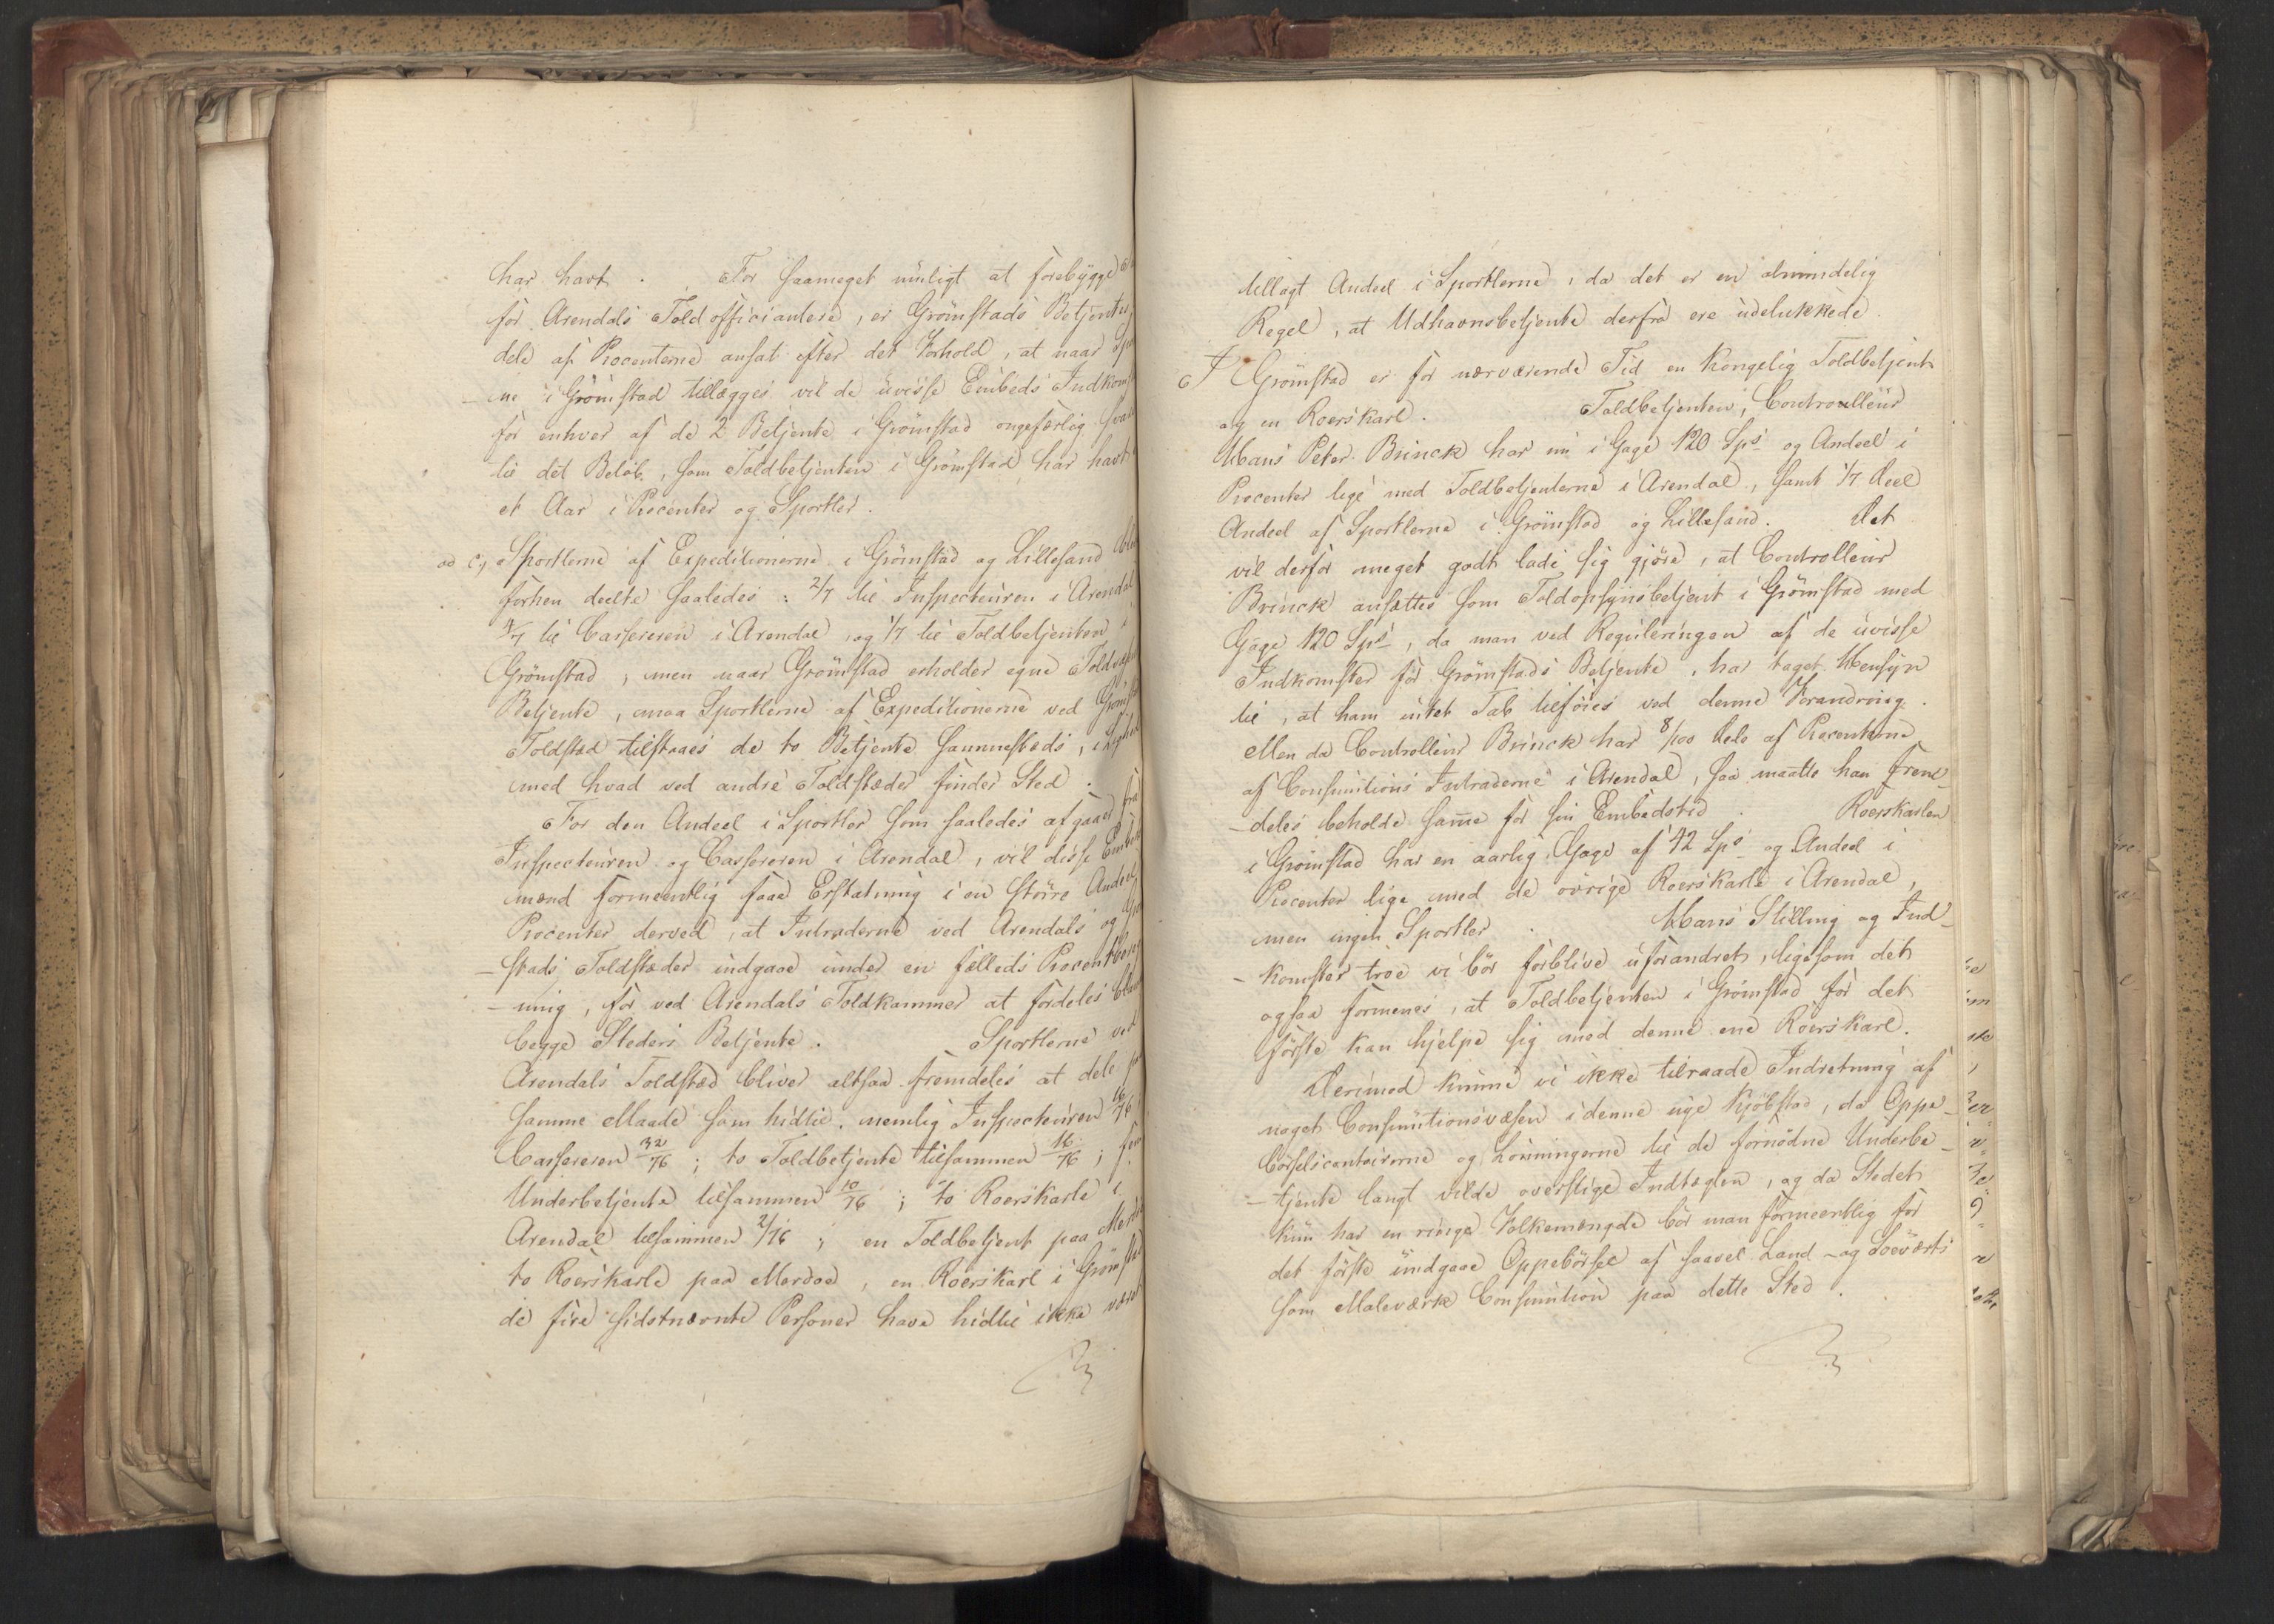 har havt. For saameget muligt at forebygge
for Arendals Toldofficianter, er Grömstads Betjentes
dele af Procenterne ansat efter det Forhold, at naar
ne i Grömstad tillægges vil de uvisse Embeds Indkom
for enhver af de 2 Betjente i Grömstad ongefærlig svare
til det Beløb, som Toldbetjenten i Grömstad har havt
et Aar i Procenter og Sportler.
ad c, Sportlerne af Expeditionerne i Grömstad og Lillesand
forhen deelte saaledes: 2/7 til Inspecteuren i Arendal
4/7 til Cassereren i Arendal, og 1/7 til Toldbetjenten i
Grömstad, men naar Grömstad erholder egne
Betjente, maa Sportlerne af Expeditionerne ved
Toldsted tilstaaes de to Betjente sammesteds,
med hvad ved andre Toldstæder finder Sted.
For den Andeel i Sportler som saaledes afgaaer fra
Inspecteuren og Cassereren i Arendal, vil disse
mænd formeentlig faae Erstatning i en större Andeel
Procenter derved, at Intraderne ved Arendals og
-stads Toldstæder indgaae under en fælleds
-ning, for ved Arendals Toldkammer at fordeles
begge Steders Betjente. Sportlerne ved
Arendals Toldsted bliver altsaa fremdeles at dele
samme Maade som hidtil, nemlig Inspecteuren 16/76
Cassereren 32/76; to Toldbetjente tilsammen 16/76;
Underbetjente tilsammen 10/76; to Roerskarle i
Arendal tilsammen 2/76; en Toldbetjent paa
to Roerskarle paa Merdøe, en Roerskarl i
de fire sidstnævnte Personer have hidtil ikke været
tillagt Andeel i Sportlerne, da det er en almindelig
Regel, at Udhavnsbetjente derfra ere udelukkede.
I Grömstad er for nærværende Tid en Kongelig Toldbetjent
og en Roerskarl. Toldbetjenten, Controulleur
Hans Peter Brinck har nu i Gage 120 Sps og Andeel i
Procenter lige med Toldbetjenterne i Arendal, samt 1/7 deel
Andeel af Sportlerne i Grömstad og Lillesand. Det
vil derfor meget godt lade sig gjöre, at Controlleur
Brinck ansættes som Toldopsynsbetjent i Grömstad med
Gage 120 Sps, da man ved Reguleringen af de uvisse
Indkomster for Grömstads Betjente, har taget Hensyn
til, at ham intet Tab tilföies ved denne Forandring.
Men da Controlleur Brinck har 8/100 dele af Procenterne
af Consumtions Intraderne i Arendal, saa maatte han frem-
-deles beholde samme for sin Embedstid. Roerskarlen
i Grömstad har en aarlig Gage af 42 Sps og Andeel i
Procenter lige med de övrige Roerskarle i Arendal,
men ingen Sportler. Hans Stilling og Ind-
-komster troe vi bör forblive uforandret, ligesom det
ogsaa formenes, at Toldbetjenten i Grömstad for det
förste kan hjelpe sig med denne ene Roerskarl.
Derimod kunne vi ikke tilraade Indretning af
noget Consumtionsvæsen i denne nye Kjöbstad, da Oppe-
börselscontoirerne og Lönningerne til de fornödne Underbe-
-tjente langt vilde overstige Indtægten, og da Stedet
kun har en ringe Folkemængde bör man formeentlig for
det förste undgaae Oppebörsel af saavel Land- og Söeværts
som Maleværk Consumtion paa dette Sted.